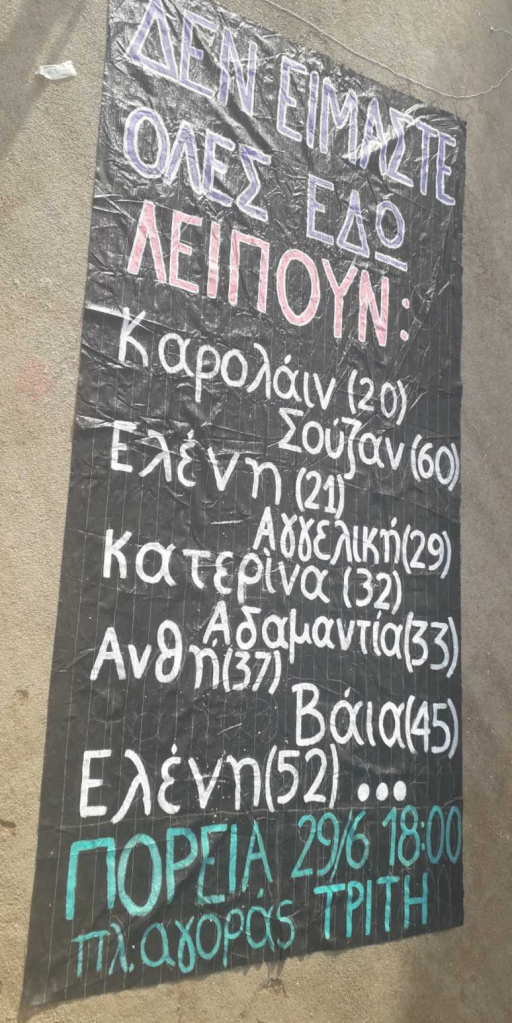 ΔΕΝ ΕΙΜΑΣΤΕ
ΟΛΕΣ ΕΔΩ
ΛΕΙΠΟΥΝ:
Καρολάιν (20)
Σούζαν (60)
Ελένη (21)
Αγγελική (29)
Κατερίνα (32)
Αδαμαντία (33)
Ανθή (37)
Βάια (45)
Ελένη (52) ...
ΠΟΡΕΙΑ 29/6 18:00
πλ. αγοράς ΤΡΙΤΗ